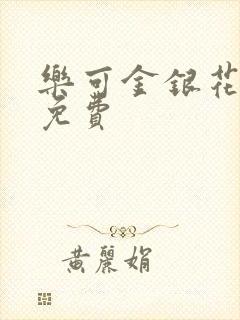 樂可金銀花
免費
黃麗娟